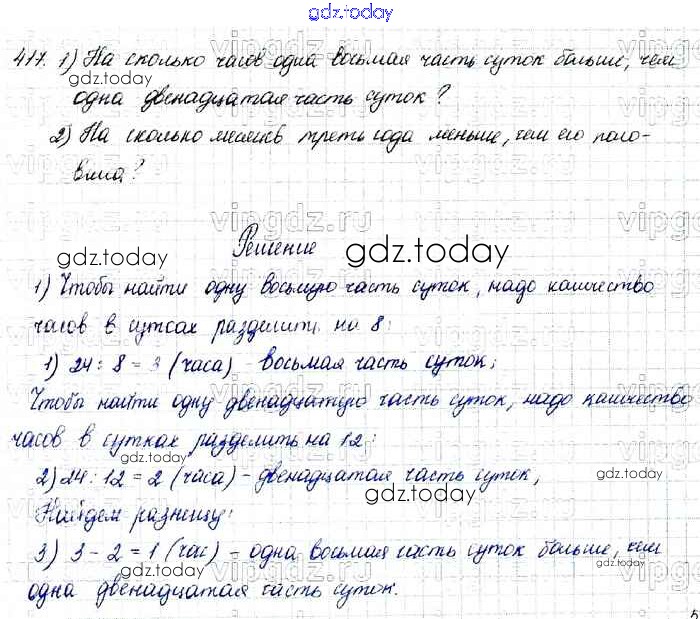 gdz.today
417. 1) На сколько часов одна восьмая часть суток больше, чем
gdz.today
одна двенадцатая часть суток?
2) На сколько месяцев треть года меньше, чем его поло-
вина?
vipgdz.ru
Решение
gdz.today
gdz.today
1) Чтобы найти одну восьмую часть суток, надо количество
часов в сутках разделить на 8:
1) 24 : 8 = 3 (часа) - восьмая часть суток;
gdz.today
gdz.today
Чтобы найти одну двенадцатую часть суток, надо количество
часов в сутках разделить на 12:
2) 24 : 12 = 2 (часа) - двенадцатая часть суток,
gdz.today
gdz.today
Найдем разницу:
3) 3 - 2 = 1 (час) - одна восьмая часть суток больше, чем
gdz.today
gdz.today
одна двенадцатая часть суток.
5